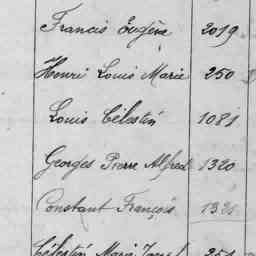 Francis Eugène 2019
Henri Louis Marie 250
Louis Célestin 1081
Georges Pierre Alfred 1320
Constant François 1321
Célestin Marie 251